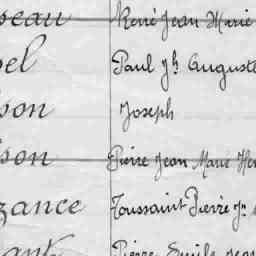 seau René Jean Marie
pel Paul Jh Auguste
son Joseph
son Pierre Jean Marie
zance Toussaint Pierre Jn
Pierre Emile